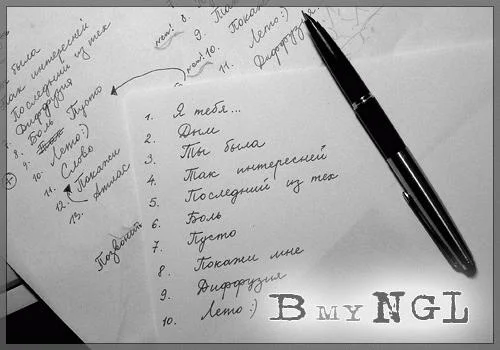 new! 8.
9.
new! 10.
Лето:)
11. Диффузия
была
Так интересней
Последний из тех
Диффузия
8. Боль Пусто
9.
10. Лето:)
11. Слово
12. Покажи
13. Атлас
Позвони
1. Я тебя...
2. Дым
3. Ты была
4. Так интересней
5. Последний из тех
6. Боль
7. Пусто
8. Покажи мне
9. Диффузия
10. Лето:)
B MY NGL